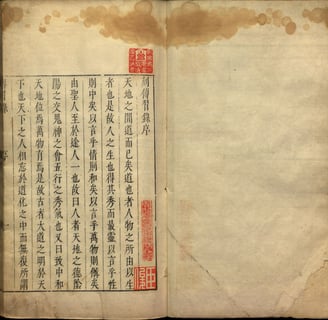 刻傳習錄序
天地之間道而已矣道也者人物之所由以生
者也是故人之生也得其秀而最靈以言乎性
則中矣以言乎情則和矣以言乎萬物則備矣
由聖人至於途人一也故曰人者天地之德陰
陽之交鬼神之會五行之秀氣也又曰致中和
天地位焉萬物育焉是故古者大道之明於天
下也天下之人相忘於道化之中而無復所謂